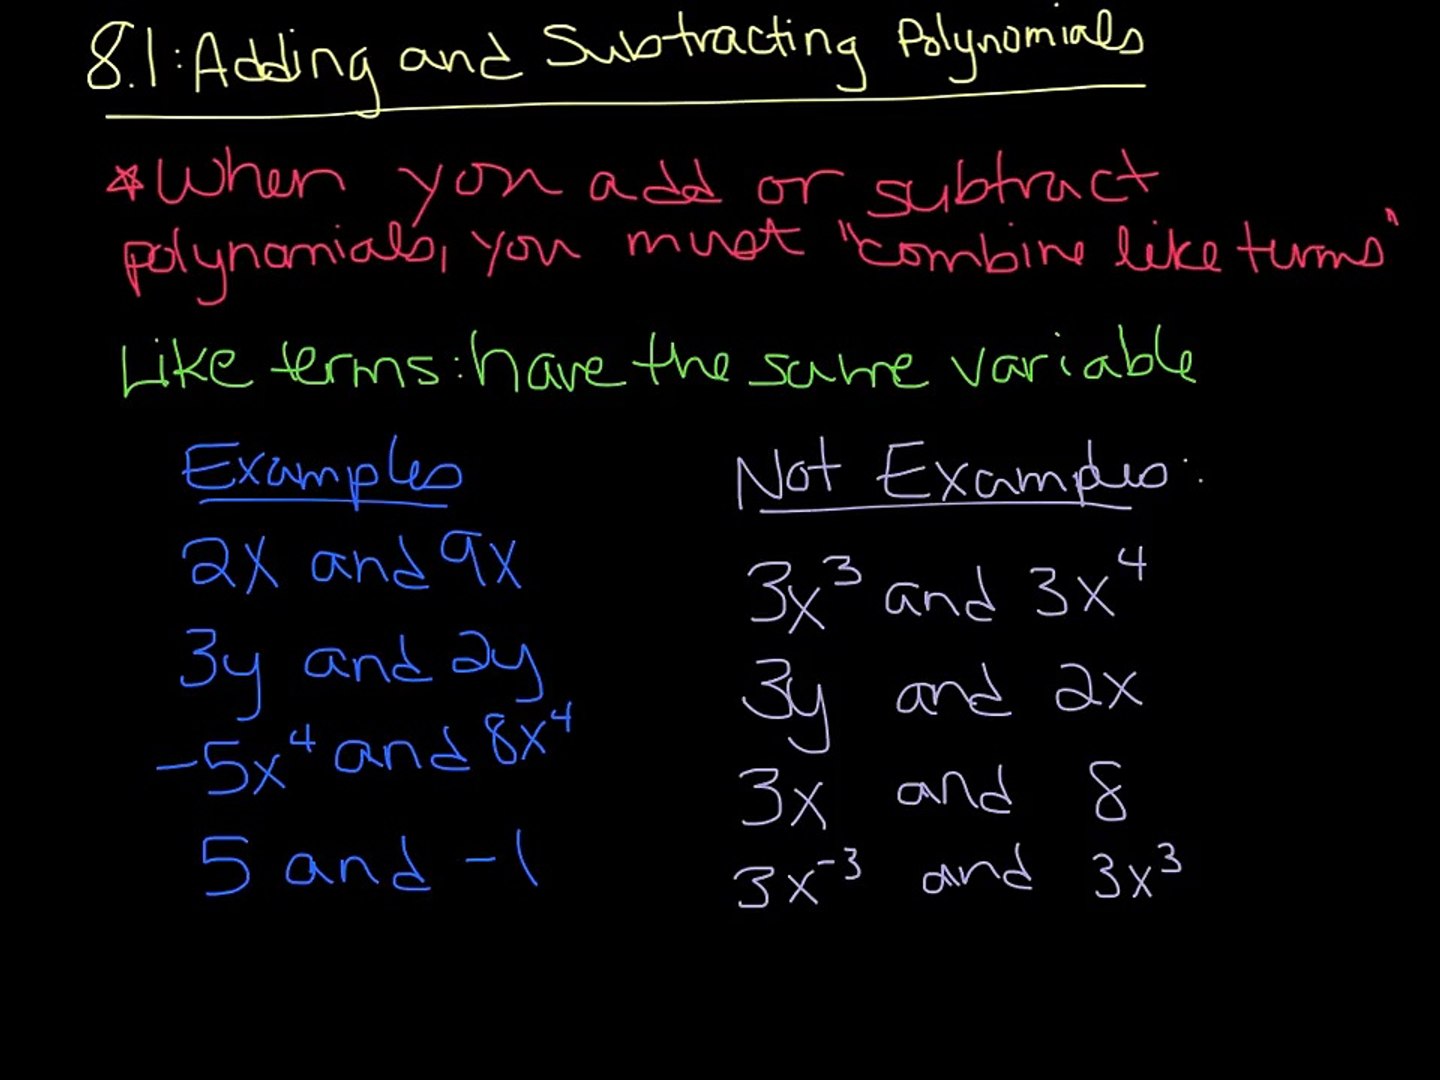 8.1: Adding and Subtracting Polynomials
*When you add or subtract
polynomials, you must "combine like terms"
Like terms: have the same variable
Examples
2x and 9x
3y and 2y
-5x⁴ and 8x⁴
5 and -1
Not Examples:
3x³ and 3x⁴
3y and 2x
3x and 8
3x⁻³ and 3x³